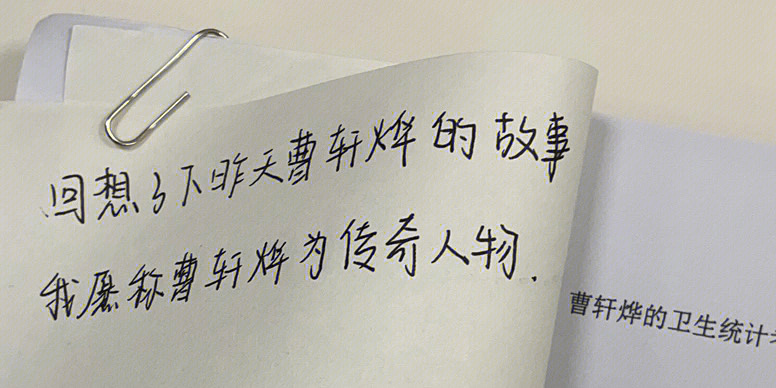 回想了下昨天曹轩烨的故事
我愿称曹轩烨为传奇人物.
曹轩烨的卫生统计